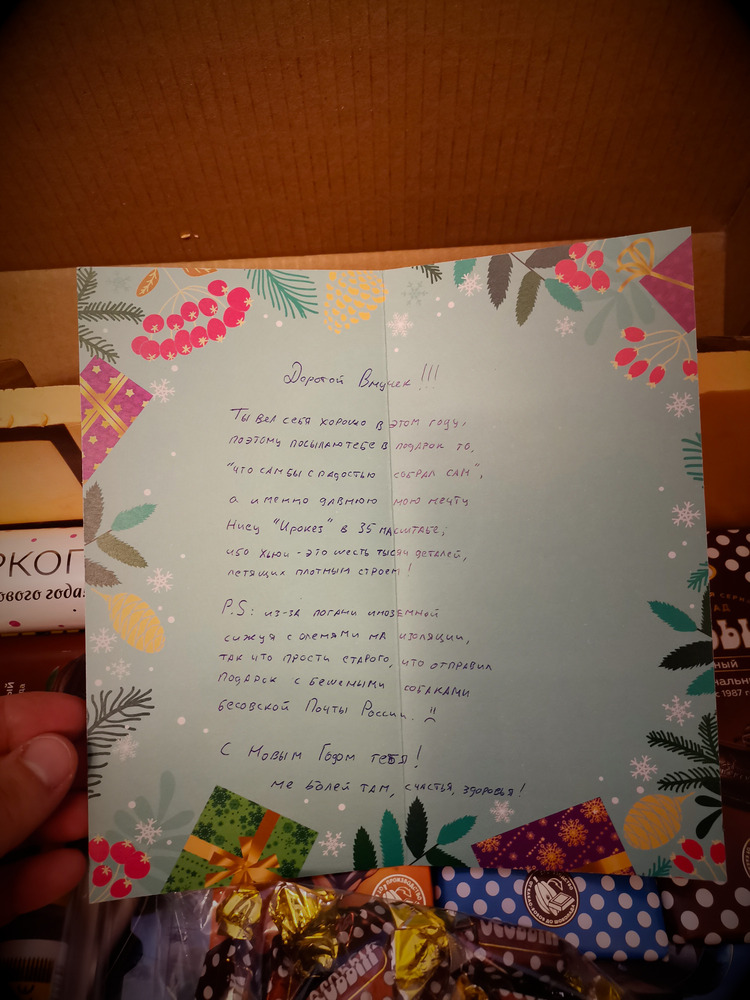 Дорогой Внучек!!!
Ты вел себя хорошо в этом году,
поэтому посылаю тебе в подарок то,
"что сам бы с радостью собрал сам",
а именно давнюю мою мечту
Нису "Ирокез" в 35 масштабе,
ибо Хьюи - это шесть тысяч деталей,
летящих плотным строем!
P.S: из-за погани иноземной
сижуя с оленями на изоляции,
так что прости старого, что отправил
подарок с бешеными собаками
бесовской Почты России.
С Новым Годом тебя!
Не болей там, счастья, здоровья!
РКОГ
ового года!
ный
с 1987 г